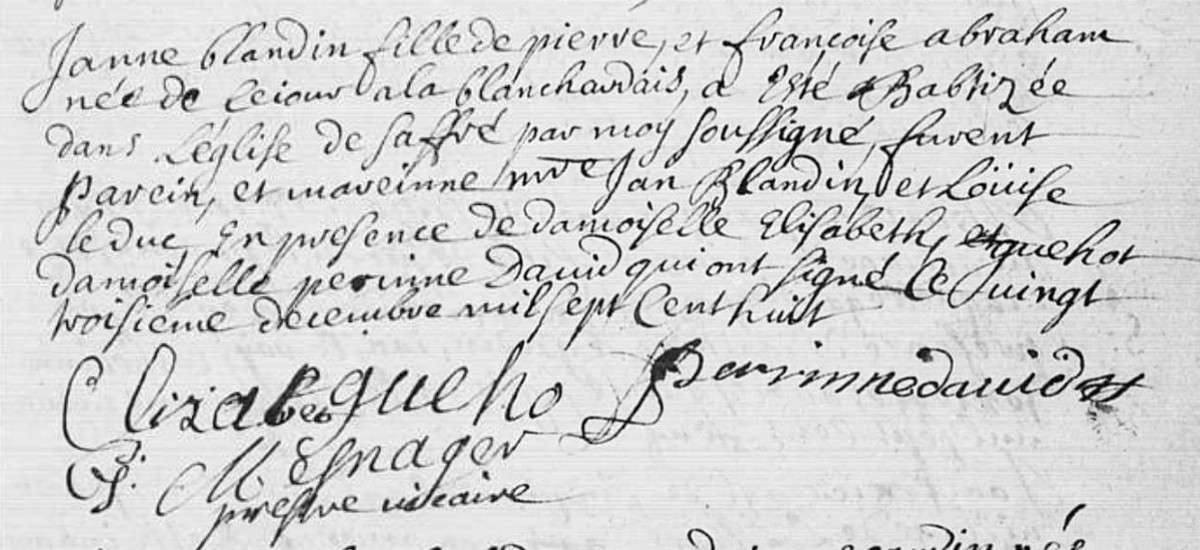 Janne blandin fille de pierre, et françoise abraham
née de ce jour a la blanchardais, a Esté Babtizée
dans L'église de saffré par moy soussigné, furent
parein, et mareinne mre Jan Blandin, et Loüise
le duc, En presence de damoiselle Elisabeth, guehot
damoiselle perinne David qui ont signé Ce vingt
troisieme decembre mil sept Cent huit
Elizabet gueho Perrinne david
Mesnager
prestre vicaire